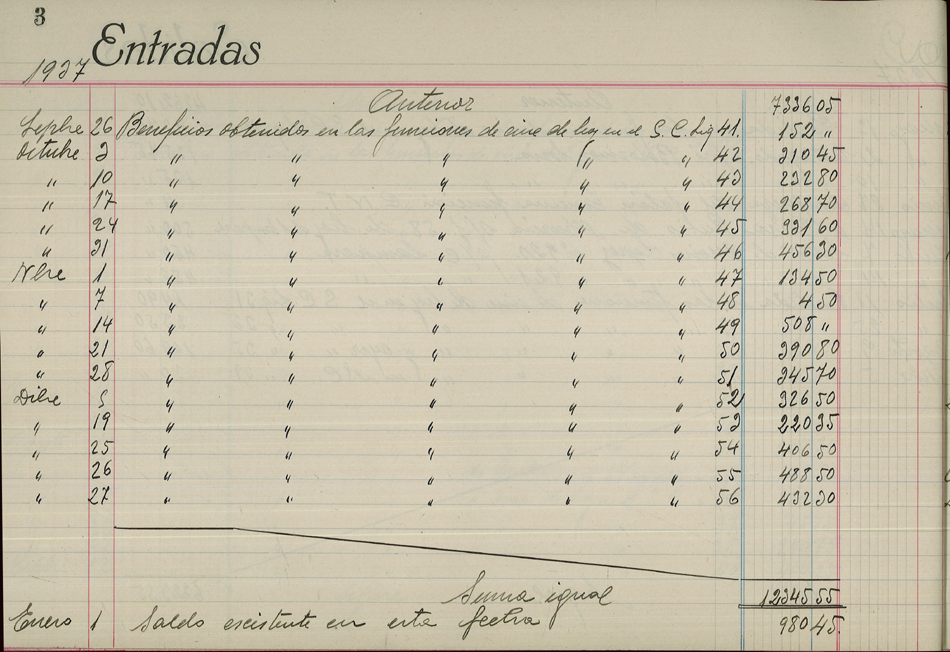 3
Entradas
1937
Anterior 7336 05
Sepbre 26 Beneficios obtenidos en las funciones de cine de hoy en el S. C. Liq 41. 152 "
Octubre 3 " " " " " 42 310 45
" 10 " " " " " 43 232 80
" 17 " " " " " 44 268 70
" 24 " " " " " 45 331 60
" 31 " " " " " 46 456 30
Nbre 1 " " " " " 47 134 50
" 7 " " " " " 48 4 50
" 14 " " " " " 49 508 "
" 21 " " " " " 50 390 80
" 28 " " " " " 51 345 70
Dibre 5 " " " " " 52 326 50
" 19 " " " " " 53 220 35
" 25 " " " " " 54 406 50
" 26 " " " " " 55 488 50
" 27 " " " " " 56 432 30
Suma igual 12345 55
Enero 1 Saldo escistente en esta fecha 980 45.